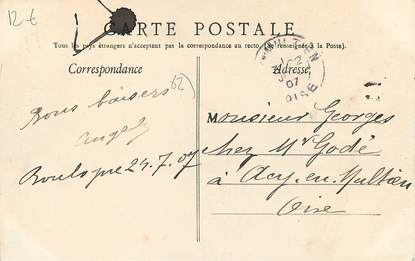 12€
CARTE POSTALE
Tous les pays étrangers n'acceptent pas la correspondance au recto. (Se renseigner à la Poste).
Correspondance
Adresse
07
OISE
62)
Bons baisers
Angel
24.7.07
Monsieur Georges
chez Mr Godé
à Acy-en-Multien
Oise